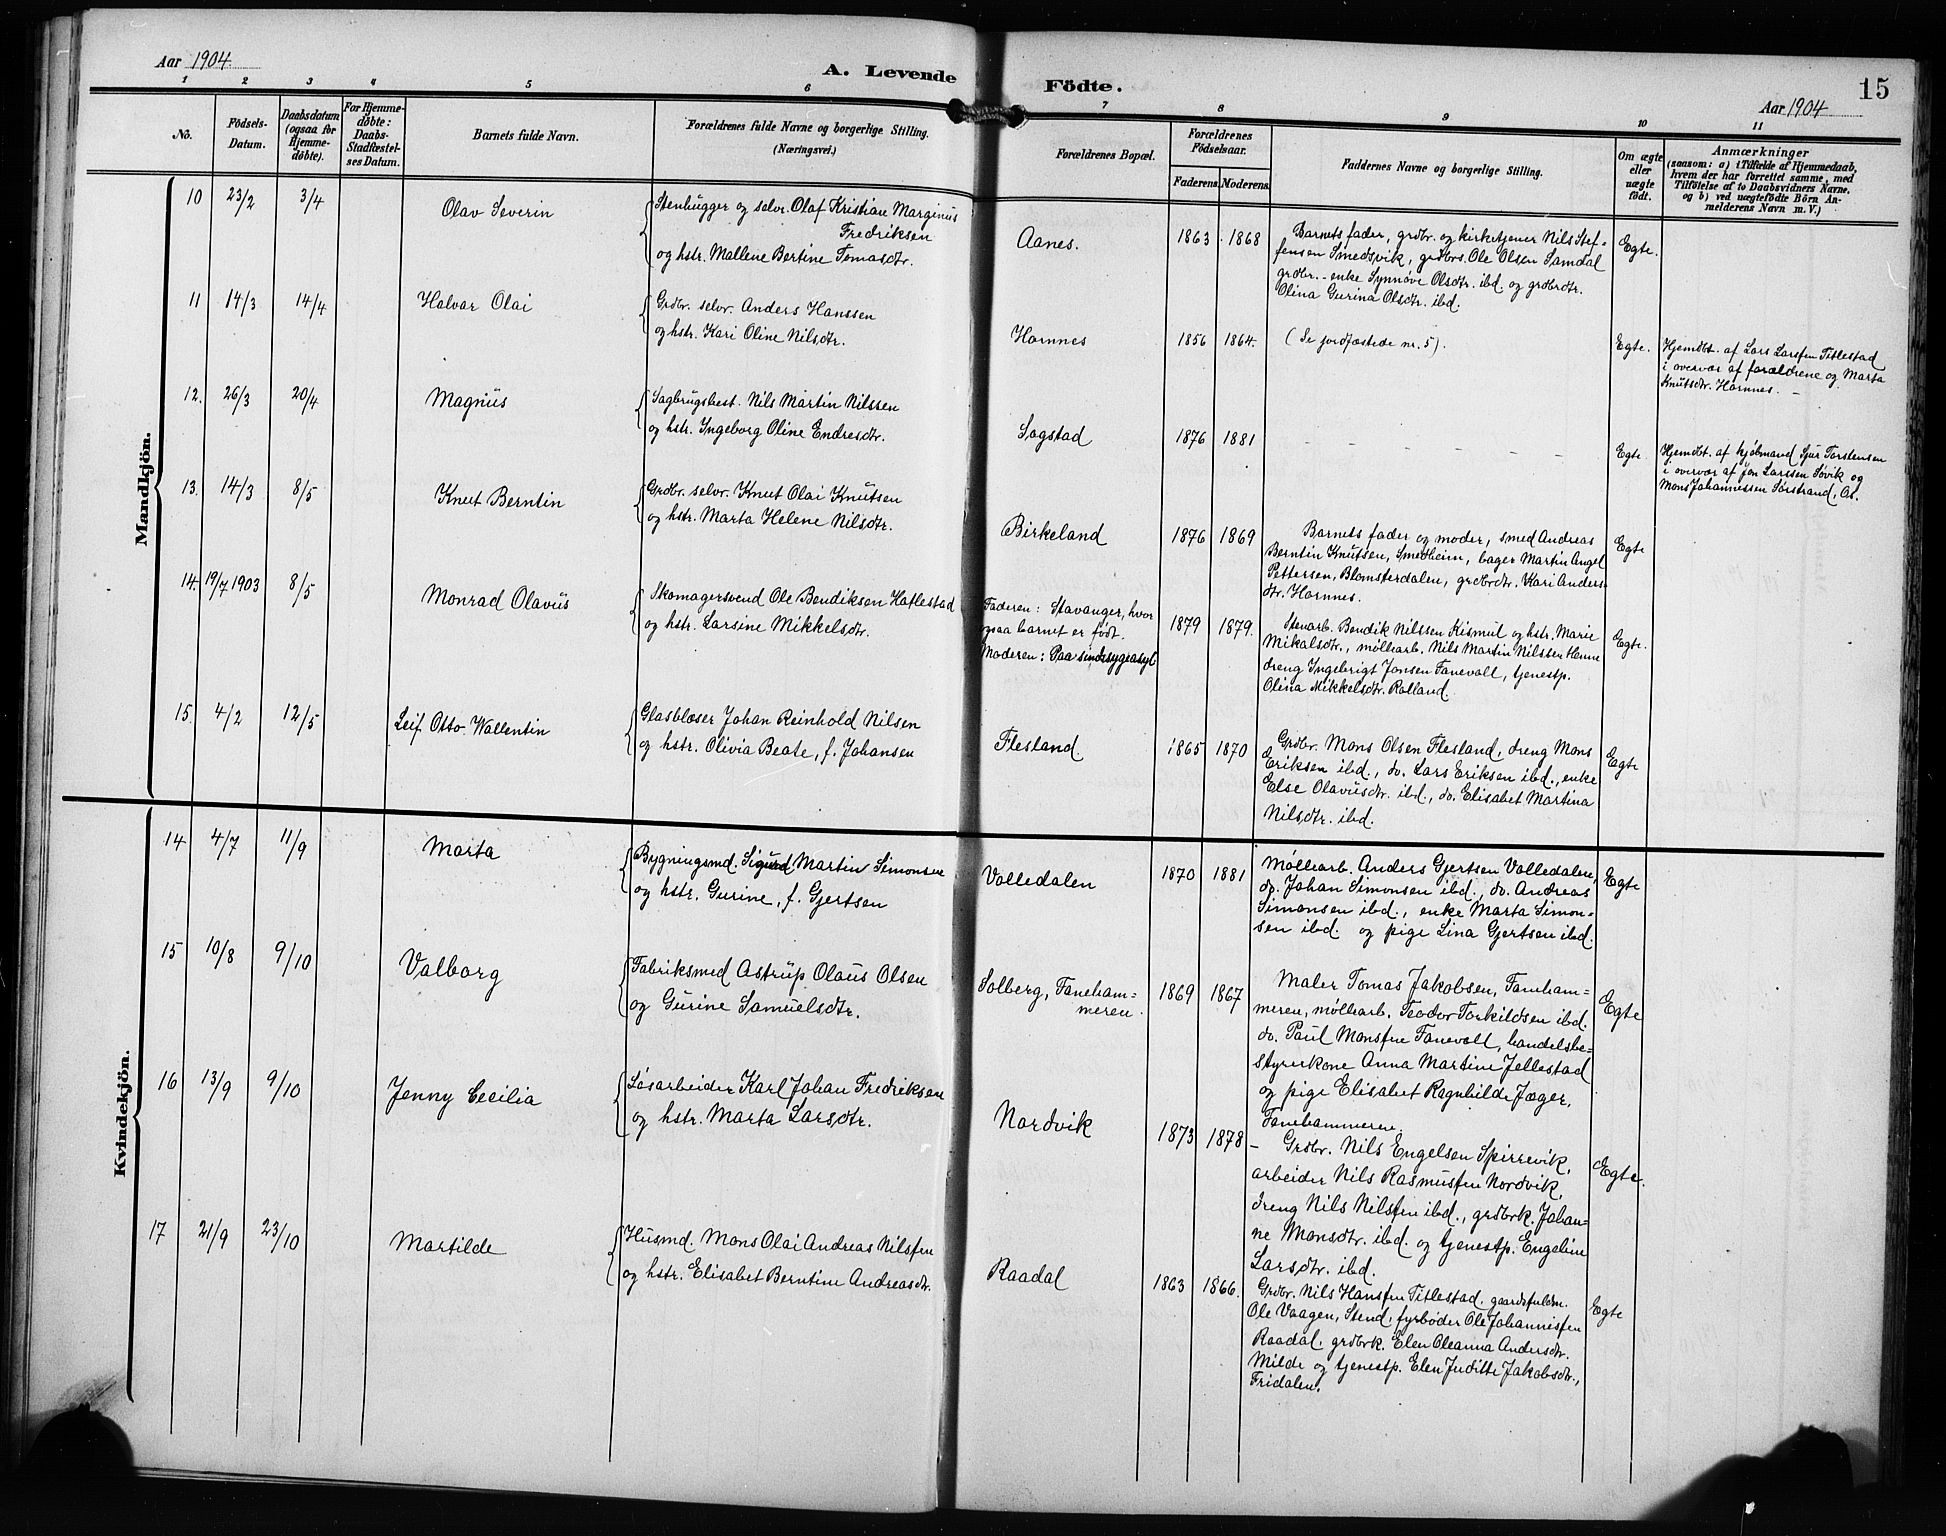 Aar 1904.
A. Levende Födte.
15
Aar 1904
1 2 3 4 5 6 7 8 9 10 11
No.
Födsels-Datum.
Daabsdatum (ogsaa for Hjemmedöbte).
For Hjemmedöbte: Daabs-Stadfæstelses Datum.
Barnets fulde Navn.
Forældrenes fulde Navne og borgerlige Stilling.
(Næringsvei.)
Forældrenes Bopæl.
Forældrenes Födselsaar.
Faderens. Moderens.
Faddernes Navne og borgerlige Stilling.
Om ægte eller uægte födt.
Anmærkninger
(saasom: a) i Tilfælde af Hjemmedaab,
hvem der har forrettet samme, med
Tilföielse af to Daabsvidners Navne,
og b) ved uægtefödte Börn An-
melderens Navn m. V.)
Mandkjön.
10 23/2 3/4 Olav Severin
Stenhugger og selv. Olaf Kristian Marginus
Fredriksen
og hstr. Mallene Bertine Tomasdtr.
Aanes. 1863. 1868
Barnets fader, grdbr. og kirketjener Nils Stef-
fensen Smedsvik, grdbrs. Ole Olsen Samdal
grdbr.-enke Synnøve Olsdtr. ibd. og grdbrdtr.
Olina Gurina Olsdtr. ibd.
Egte.
11 14/3 14/4 Halvar Olai
Grdbr. selv. Anders Hanssen
og hstr. Kari Oline Nilsdtr.
Hamnes 1856 1864.
(Se jordfæstede nr. 5).
Egte.
Hjemdbt. af Lars Larsfen Titlestad
i overvær af forældrene og Marta
Knutsdtr. Hamnes. –
12. 26/3 20/4 Magnus
Sagbrugsbest. Nils Martin Nilssen
og hstr. Ingeborg Oline Endresdtr.
Søgstad 1876 1881
– – – – – –
Egte
Hjemdbt. af kjøbmand Sjur Torstensen
i overvær af Jon Larssen Søvik og
Mons Johannessen Sørstrand, Os.
13. 14/3 8/5 Knut Berntin
Grdbr. selv. Knut Olai Knutsen
og hstr. Marta Helene Nilsdtr.
Birkeland 1876 1869
Barnets fader og moder, smed Andreas
Berntin Knutsen, Smedheim, bager Martin Angel
Pettersen, Blomsterdalen, grdbrdtr. Kari Anders-
dtr. Hamnes.
Egte
14. 19/7 1903 8/5 Monrad Olavus
Skomagersvend Ole Bendiksen Hatlestad
og hstr. Larsine Mikkelsdtr.
Faderen: Stavanger, hvor
ogsaa barnet er født.
Moderen: Paa sindssygeasyl
1879 1879.
Stenarb. Bendik Nilssen Kismul og hstr. Marie
Mikalsdtr., møllearb. Nils Martin Nilssen Henne
dreng Ingebrigt Jonsen Fanevoll, tjenestp.
Olina Mikkelsdtr. Rolland.
Egte.
15. 4/2 12/5 Leif Otto Wallentin
Glasblæser Johan Reinhold Nilsen
og hstr. Olivia Beate, f. Johansen
Flesland. 1865 1870
Grdbr. Mons Olsen Flesland, dreng Mons
Eriksen ibd., do. Lars Eriksen ibd., enke
Else Olavusdtr. ibd., do. Elisabet Martina
Nilsdtr. ibd.
Egte
Kvindekjön.
14 4/7 11/9 Marta
Bygningsmd. Sigurd Martin Simonsen
og hstr. Gurine, f. Gjertsen
Valledalen 1870 1881
Møllearb. Anders Gjertsen Valledalen,
do. Johan Simonsen ibd., do. Andreas
Simonsen ibd., enke Marta Simon-
sen ibd. og pige Lina Gjertsen ibd.
Egte
15 10/8 9/10 Valborg
Fabriksmed Astrup Olaus Olsen
og Gurine Samuelsdtr.
Solberg, Faneham-
meren. 1869 1867
Maler Tomas Jakobsen, Faneham-
meren, møllearb. Teodor Torkildsen ibd.
do. Paul Monsfen Fanevoll, handelsbe-
styrerkone Anna Martine Jellestad
og pige Elisabet Ragnhilde Jæger,
Fanehammeren.
Egte
16 13/9 9/10 Jenny Cecilia
Løsarbeider Karl Johan Fredriksen
og hstr. Marta Larsdtr.
Nordvik 1873 1878
– Grdbr. Nils Engelsen Spirrevik,
arbeider Nils Rasmusfen Nordvik,
dreng Nils Nilsfen ibd., grdbrk. Johan-
ne Monsdtr. ibd. og tjenestp. Engeline
Larsdtr. ibd.
Egte.
17 21/9 23/10 Martilde
Husmd. Mons Olai Andreas Nilsfen
og hstr. Elisabet Berntine Andreasdtr.
Raadal 1863 1866.
Grdbr. Nils Hansfen Titlestad. gaardsfuldm.
Ole Vaagen, Stend, fyrbøder Ole Johannesfen
Raadal. grdbrk. Elen Oleanna Andersdtr.
Milde og tjenestp. Elen Juditte Jakobsdtr.,
Fridalen.
Egte